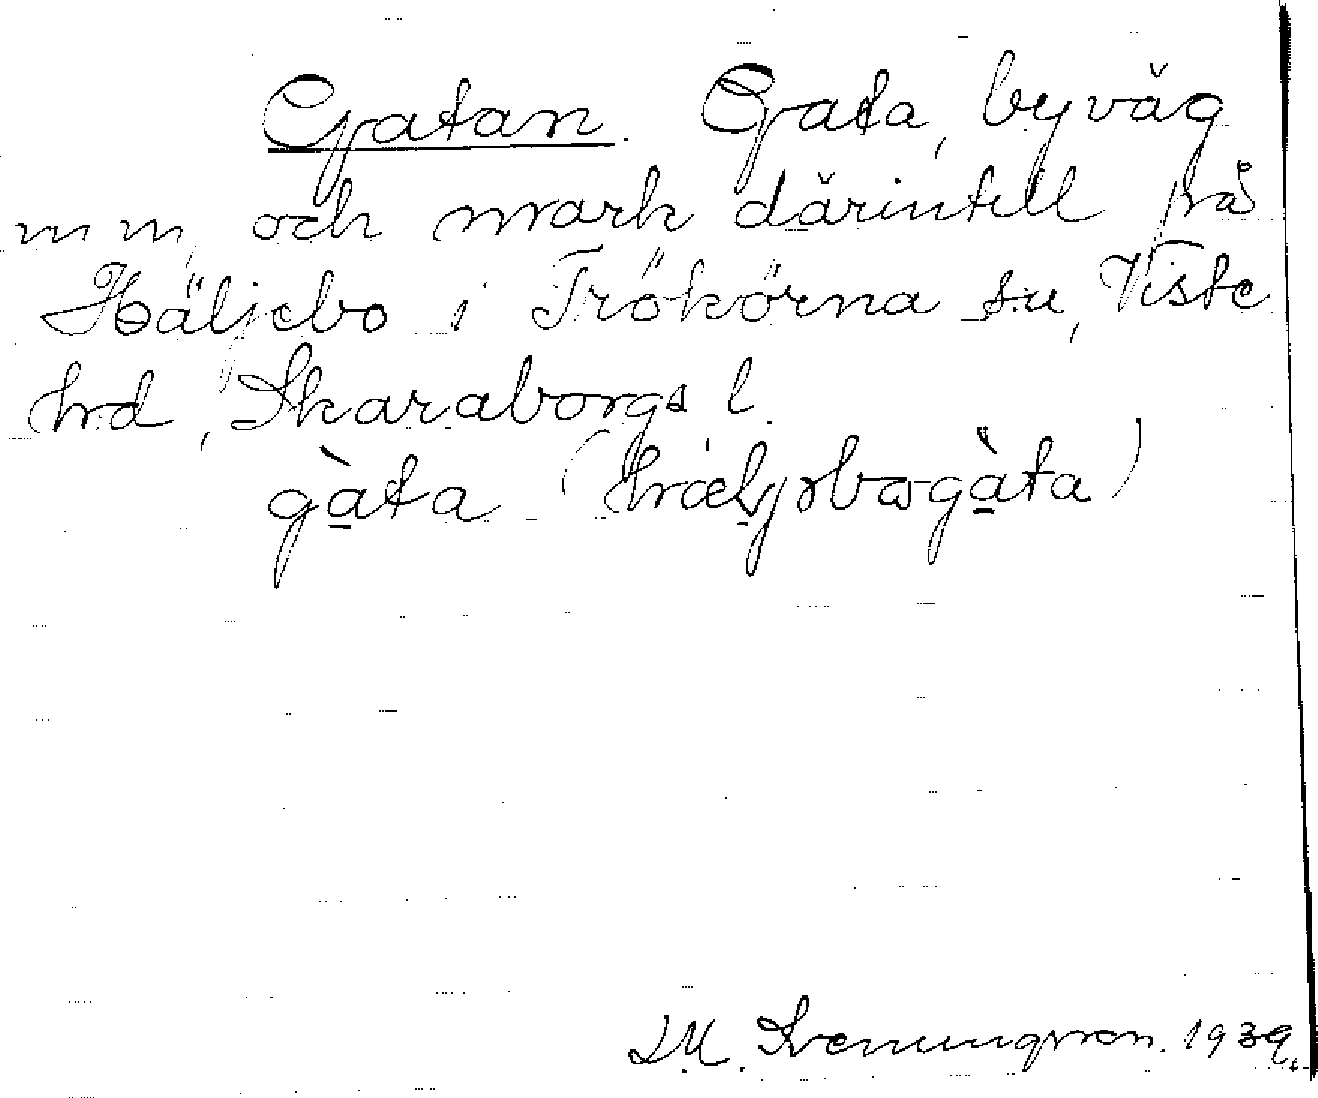 Gatan. Gata, byväg
m m, och mark därintill på
Häljebo i Trökörna sn, Viste
hrd, Skaraborgs l.
gàta (hæljəbogàta)
I.M. Svenungsson. 1939.